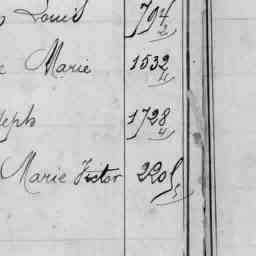 Louis 794/2
Marie 1532/11
seph 1728/4
Marie Victor 2205/5